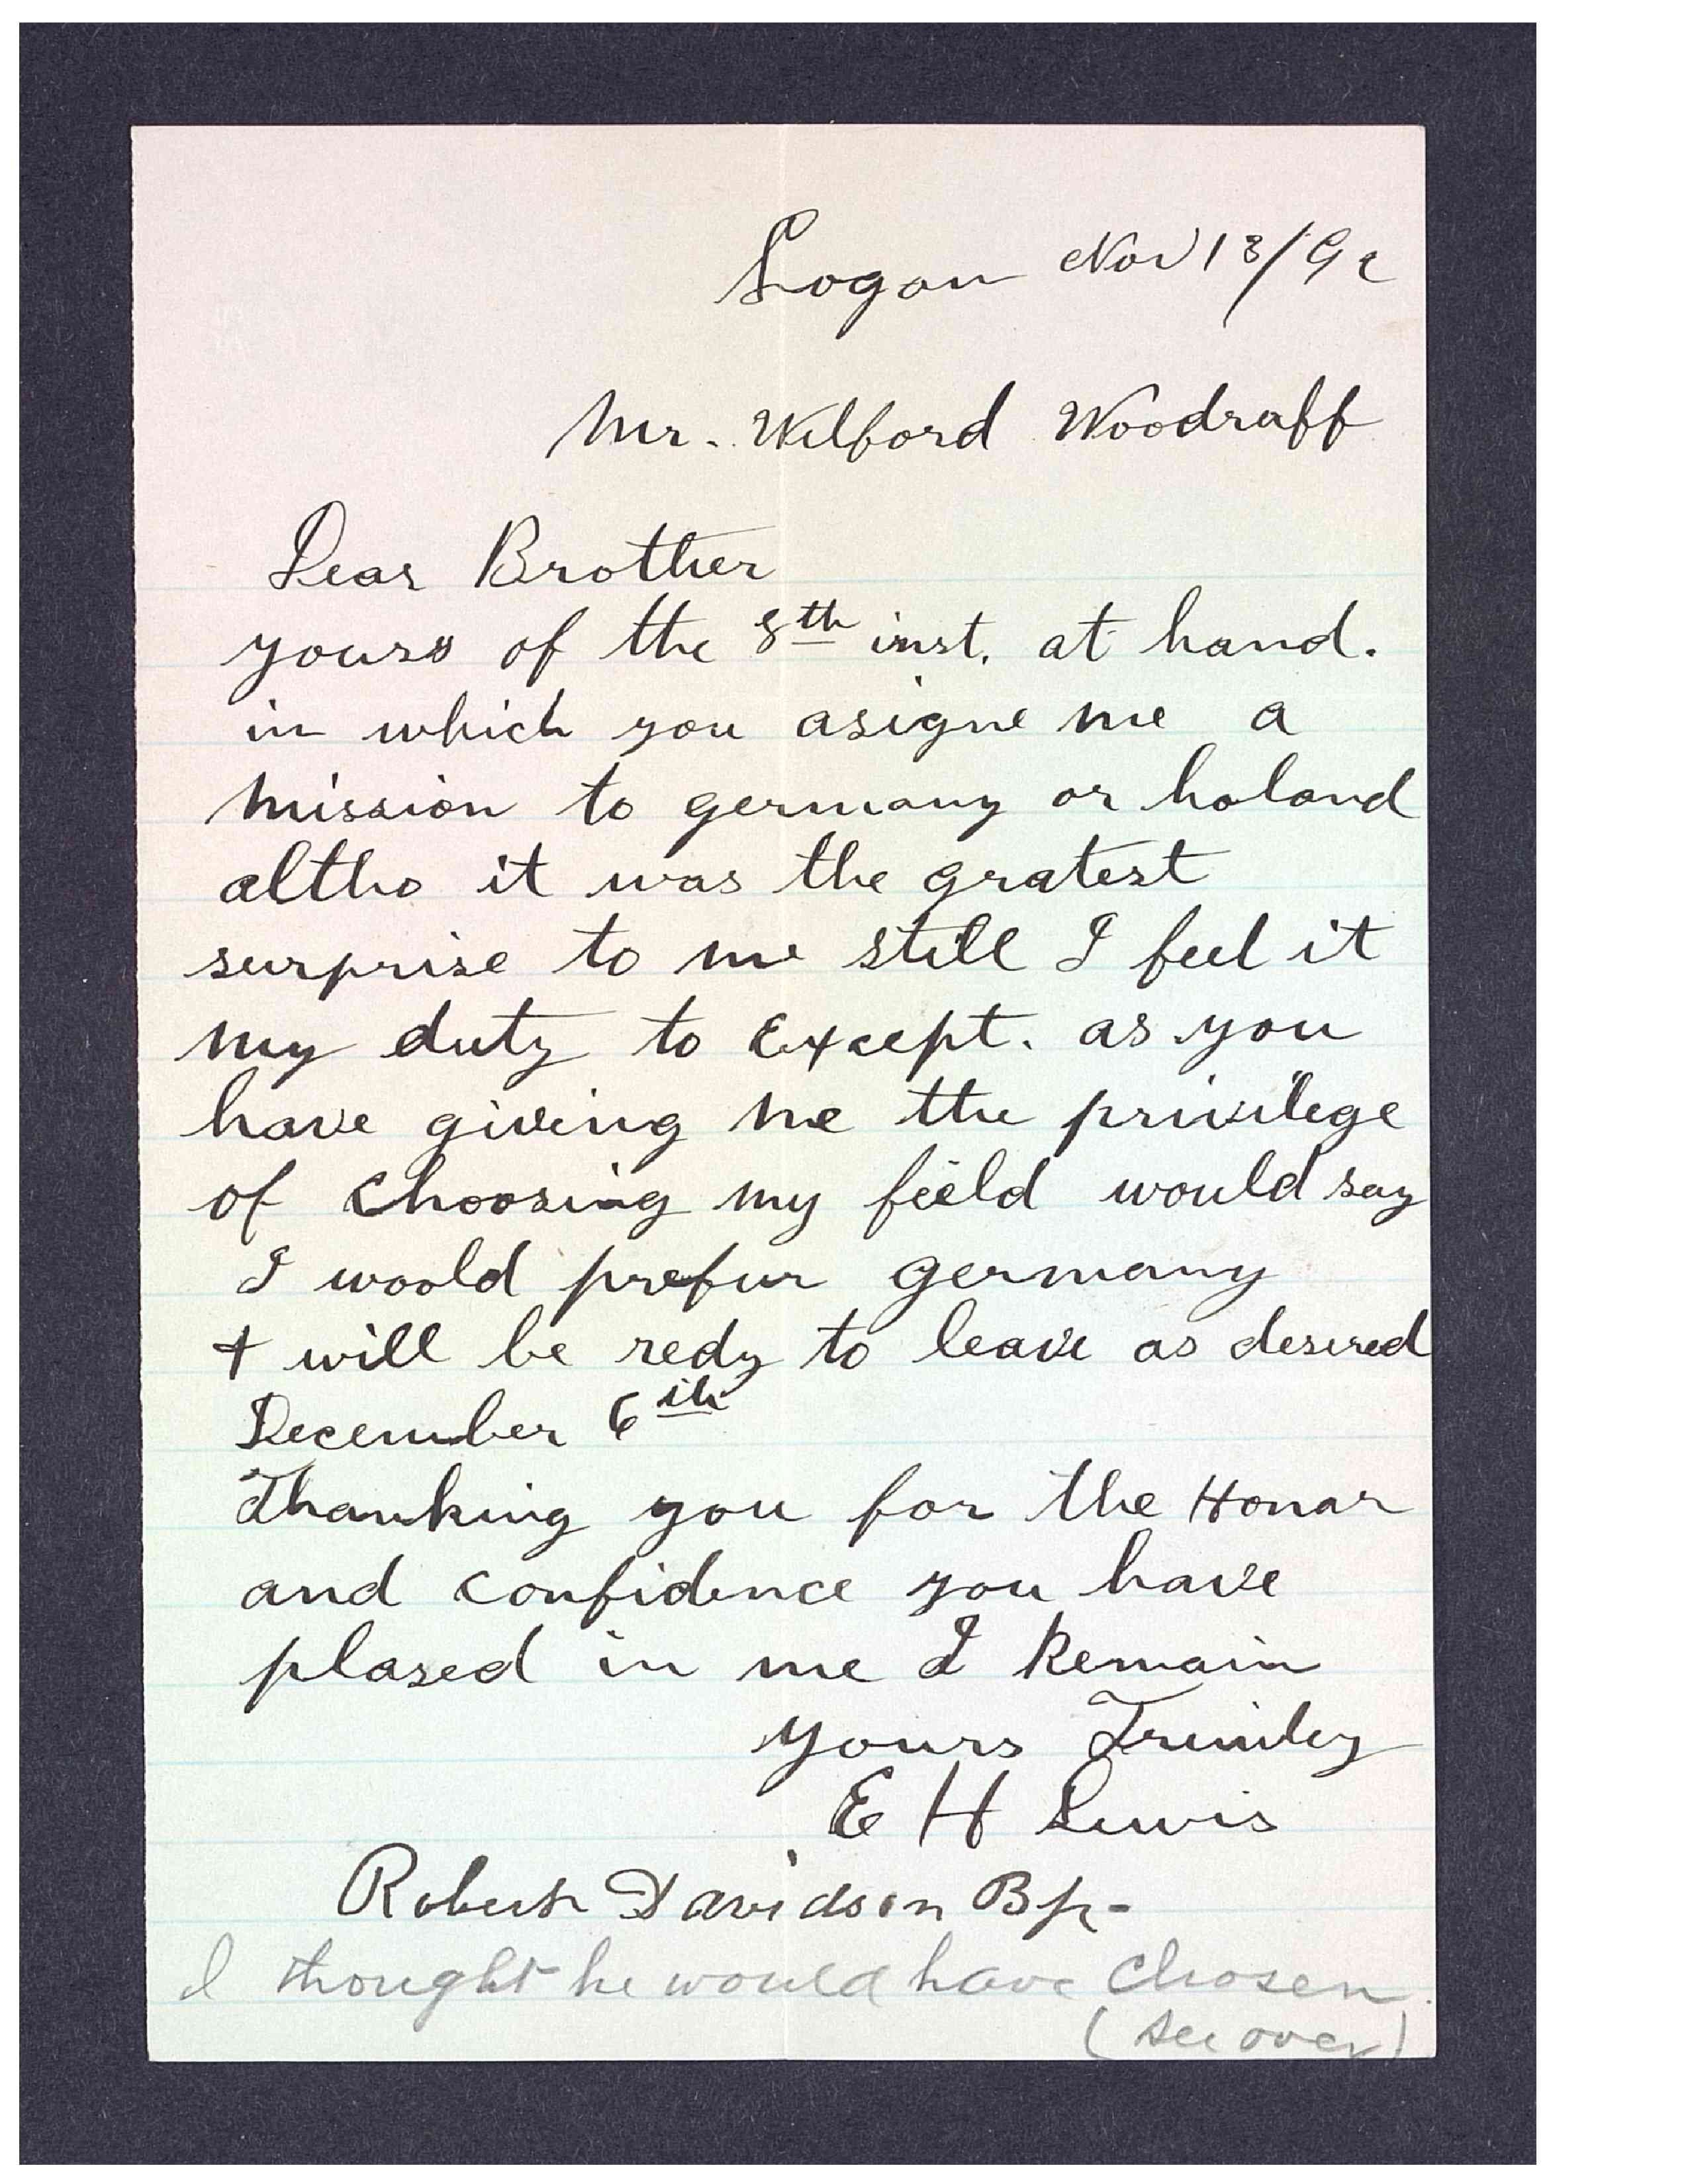 Logan Nov 13/92
Mr. Wilford Woodruff
Dear Brother
yours of the 8th inst. at hand.
in which you asigne me a
mission to germany or holand
altho it was the gratest
surprise to me still I feel it
my duty to Except. as you
have giving me the privilege
of choosing my field would say
I woold prefur germany
+ will be redy to leave as desired
December 6th
Thanking you for the Honar
and confidence you have
plased in me I Remain
yours Truley
E H Lewis
Robert Davidson Bp-
I thought he would have chosen
(see over)